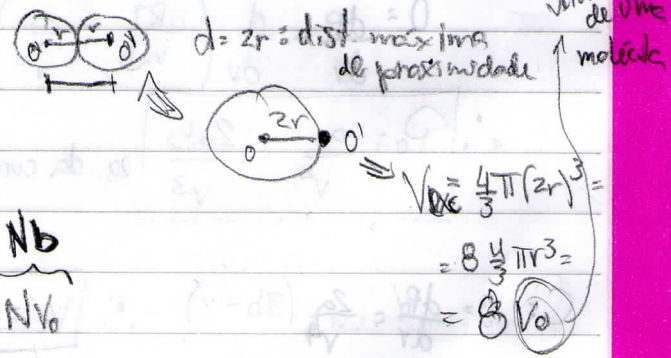 volu
de uma
molécula
O r r O'
d = 2r = dist máxima
de proximidade
O 2r O'
V_exc = 4/3 π(2r)³ =
= 8 4/3 πr³ =
= 8 V₀
Nb
NV₀
(3b - v)